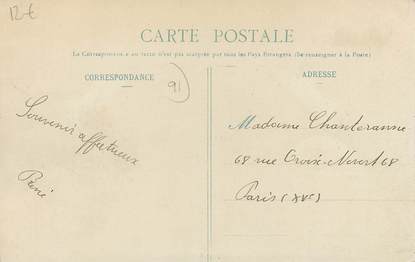 12€
CARTE POSTALE
La Correspondance au recto n'est pas acceptée par tous les Pays Étrangers (Se renseigner à la Poste)
CORRESPONDANCE
91
ADRESSE
Souvenir affectueux
René
Madame Chanteranne
68 rue Croix-Nivert 68
Paris (XVe)